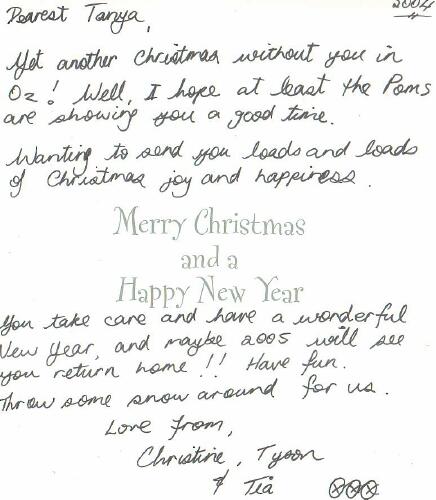 2004
Dearest Tanya,
Yet another Christmas without you in
Oz! Well, I hope at least the Poms
are showing you a good time.
Wanting to send you loads and loads
of Christmas joy and happiness.
Merry Christmas
and a
Happy New Year
You take care and have a wonderful
New Year, and maybe 2005 will see
you return home!! Have fun.
Throw some snow around for us.
Love from,
Christine, Tyson
& Tia